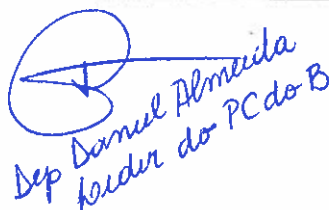 Dep Daniel Almeida
Lider do PC do B